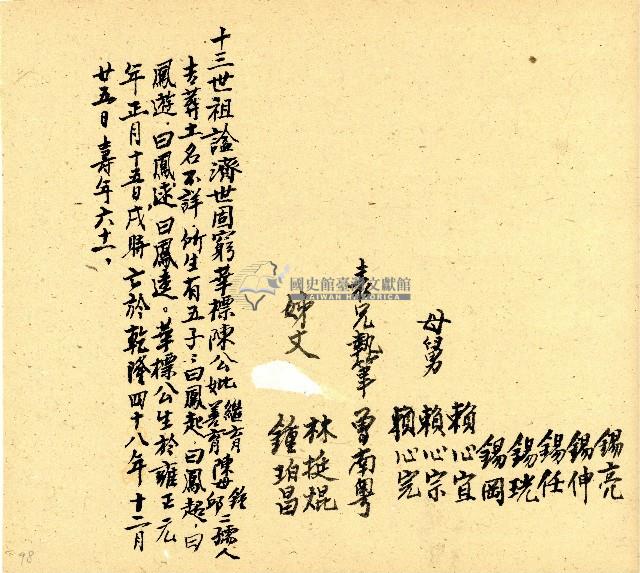 錫亮
錫伸
錫任
錫珖
錫岡
母舅
賴心宜
賴心宗
賴心完
表兄執筆 曾南粵
林挺焜
姊丈
鍾珀昌
十三世祖諡濟世固窮華標陳公妣繼育善育陳母鍾邱二孺人
去葬土名不詳所生有五子:曰鳳起、曰鳳起、曰
鳳遊、曰鳳逑、曰鳳逵。華標公生於雍正元
年正月十五日戌時亡於乾隆四十八年十二月
廿五日壽年六十一、
國史館臺灣文獻館
TAIWAN HISTORICA
98